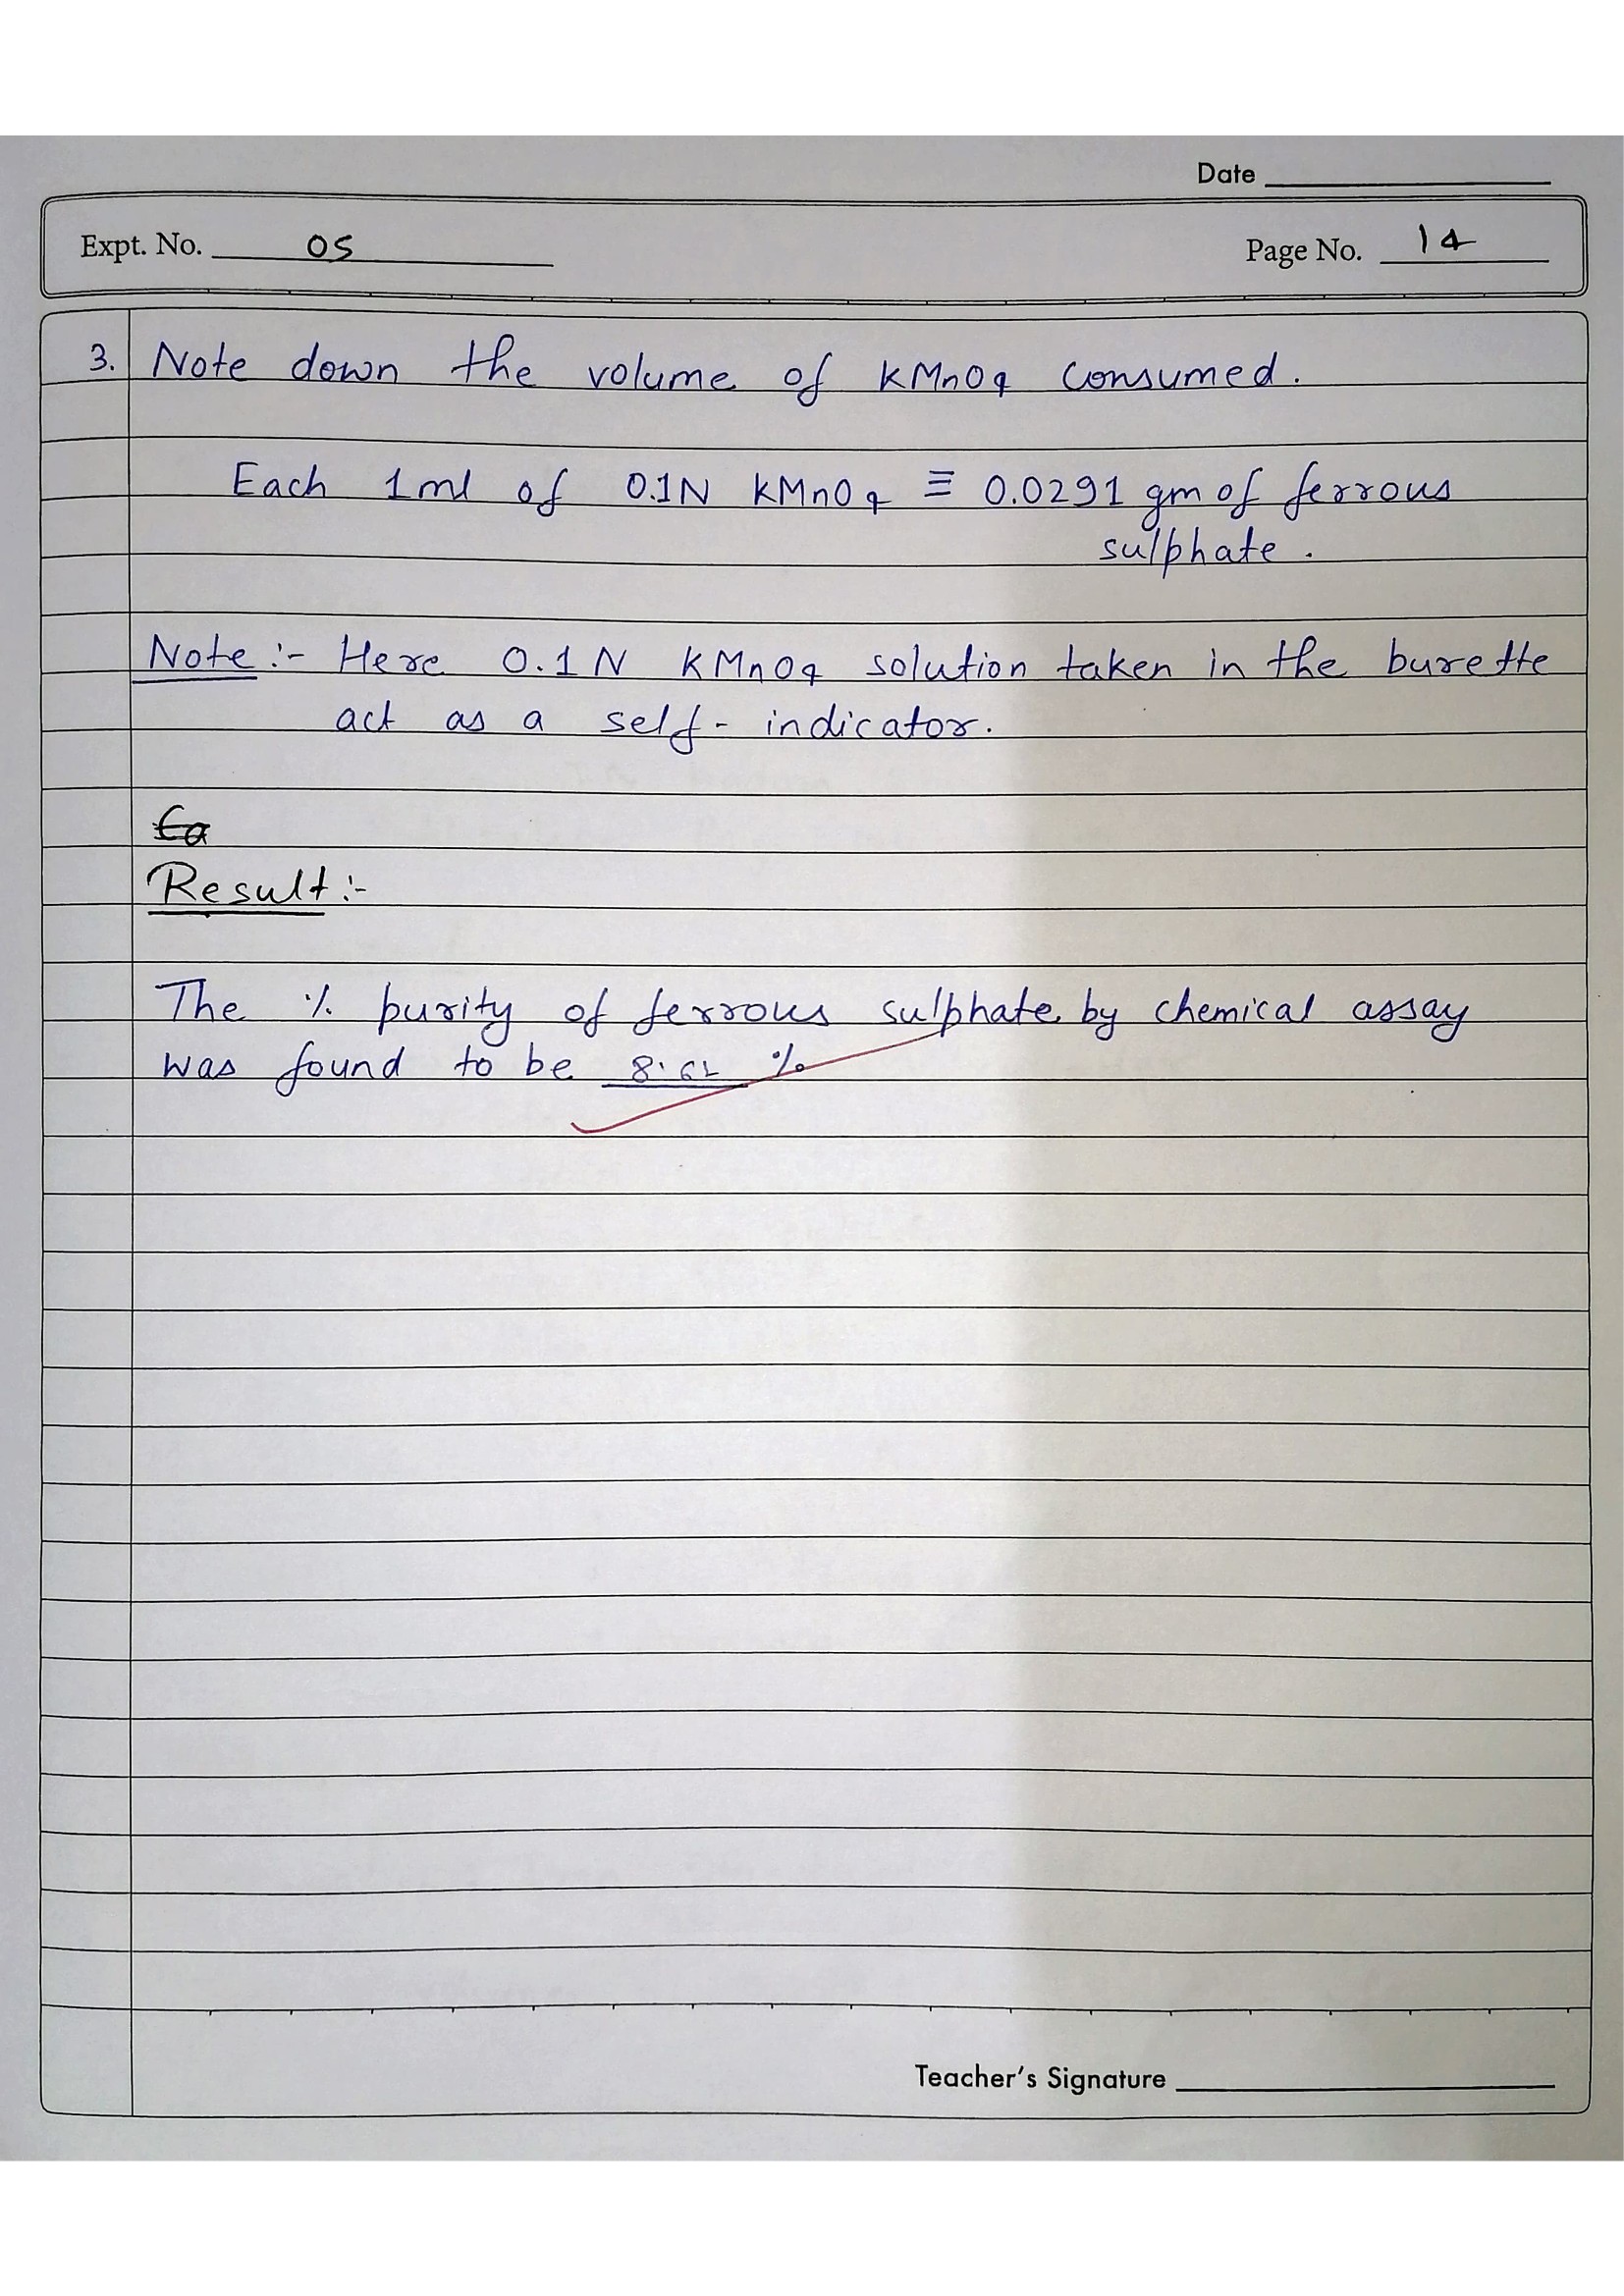 Date
Expt. No. 05
Page No. 14
3. Note down the volume of KMnO4 consumed.
Each 1ml of 0.1N KMnO4 ≡ 0.0291 gm of ferrous
sulphate.
Note :- Here 0.1N KMnO4 solution taken in the burette
act as a self-indicator.
Result :-
The % purity of ferrous sulphate by chemical assay
was found to be 8.62 %
Teacher's Signature